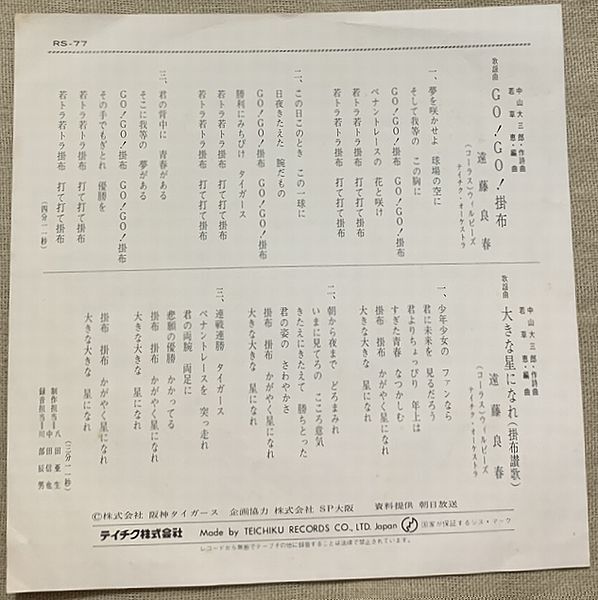 RS-77
歌謡曲
GO!GO!掛布
中山大三郎・作詩曲
若草恵・編曲
遠藤良春
(コーラス)ウィルビーズ
テイチク・オーケストラ
一、夢を咲かせよ 球場の空に
そして我等の この胸に
GO!GO!掛布 GO!GO!掛布
ペナントレースの 花と咲け
若トラ若トラ掛布 打て打て掛布
若トラ若トラ掛布 打て打て掛布
二、この日このとき この一球に
日夜きたえた 腕だもの
GO!GO!掛布 GO!GO!掛布
勝利にみちびけ タイガース
若トラ若トラ掛布 打て打て掛布
若トラ若トラ掛布 打て打て掛布
三、君の背中に 青春がある
そこに我等の 夢がある
GO!GO!掛布 GO!GO!掛布
その手でもぎとれ 優勝を
若トラ若トラ掛布 打て打て掛布
若トラ若トラ掛布 打て打て掛布
(四分一一秒)
歌謡曲
大きな星になれ(掛布讃歌)
中山大三郎・作詩曲
若草恵・編曲
遠藤良春
(コーラス)ウィルビーズ
テイチク・オーケストラ
一、少年少女の ファンなら
君に未来を 見るだろう
君よりちょっぴり 年上は
すぎた青春 なつかしむ
掛布 掛布 かがやく星になれ
大きな大きな 星になれ
二、朝から夜まで どろまみれ
いまに見てろの こころ意気
きたえにきたえて 勝ちとった
君の姿の さわやかさ
掛布 掛布 かがやく星になれ
大きな大きな 星になれ
三、連戦連勝 タイガース
ペナントレースを 突っ走れ
君の両腕 両足に
悲願の優勝 かかってる
掛布 掛布 かがやく星になれ
大きな大きな 星になれ
掛布 掛布 かがやく星になれ
大きな大きな 星になれ
(三分一一秒)
制作担当=八田亜生
中田信也
録音担当=川部辰男
©株式会社 阪神タイガース 企画協力 株式会社 SP大阪 資料提供 朝日放送
テイチク株式会社 Made by TEICHIKU RECORDS CO., LTD. Japan 国家が保証するジス・マーク
レコードから無断でテープその他に録音することは法律で禁止されています。